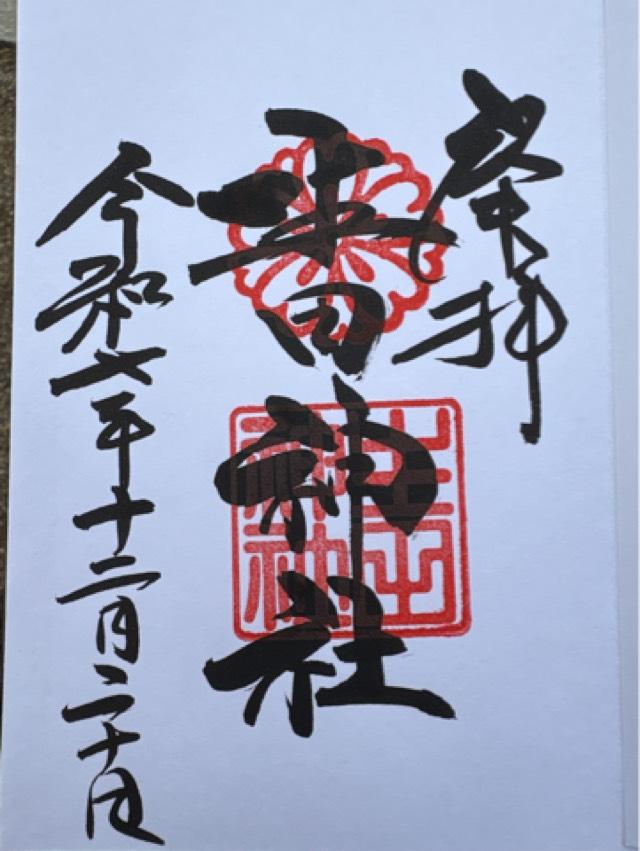 奉拝
神社
令和七年十二月二十日